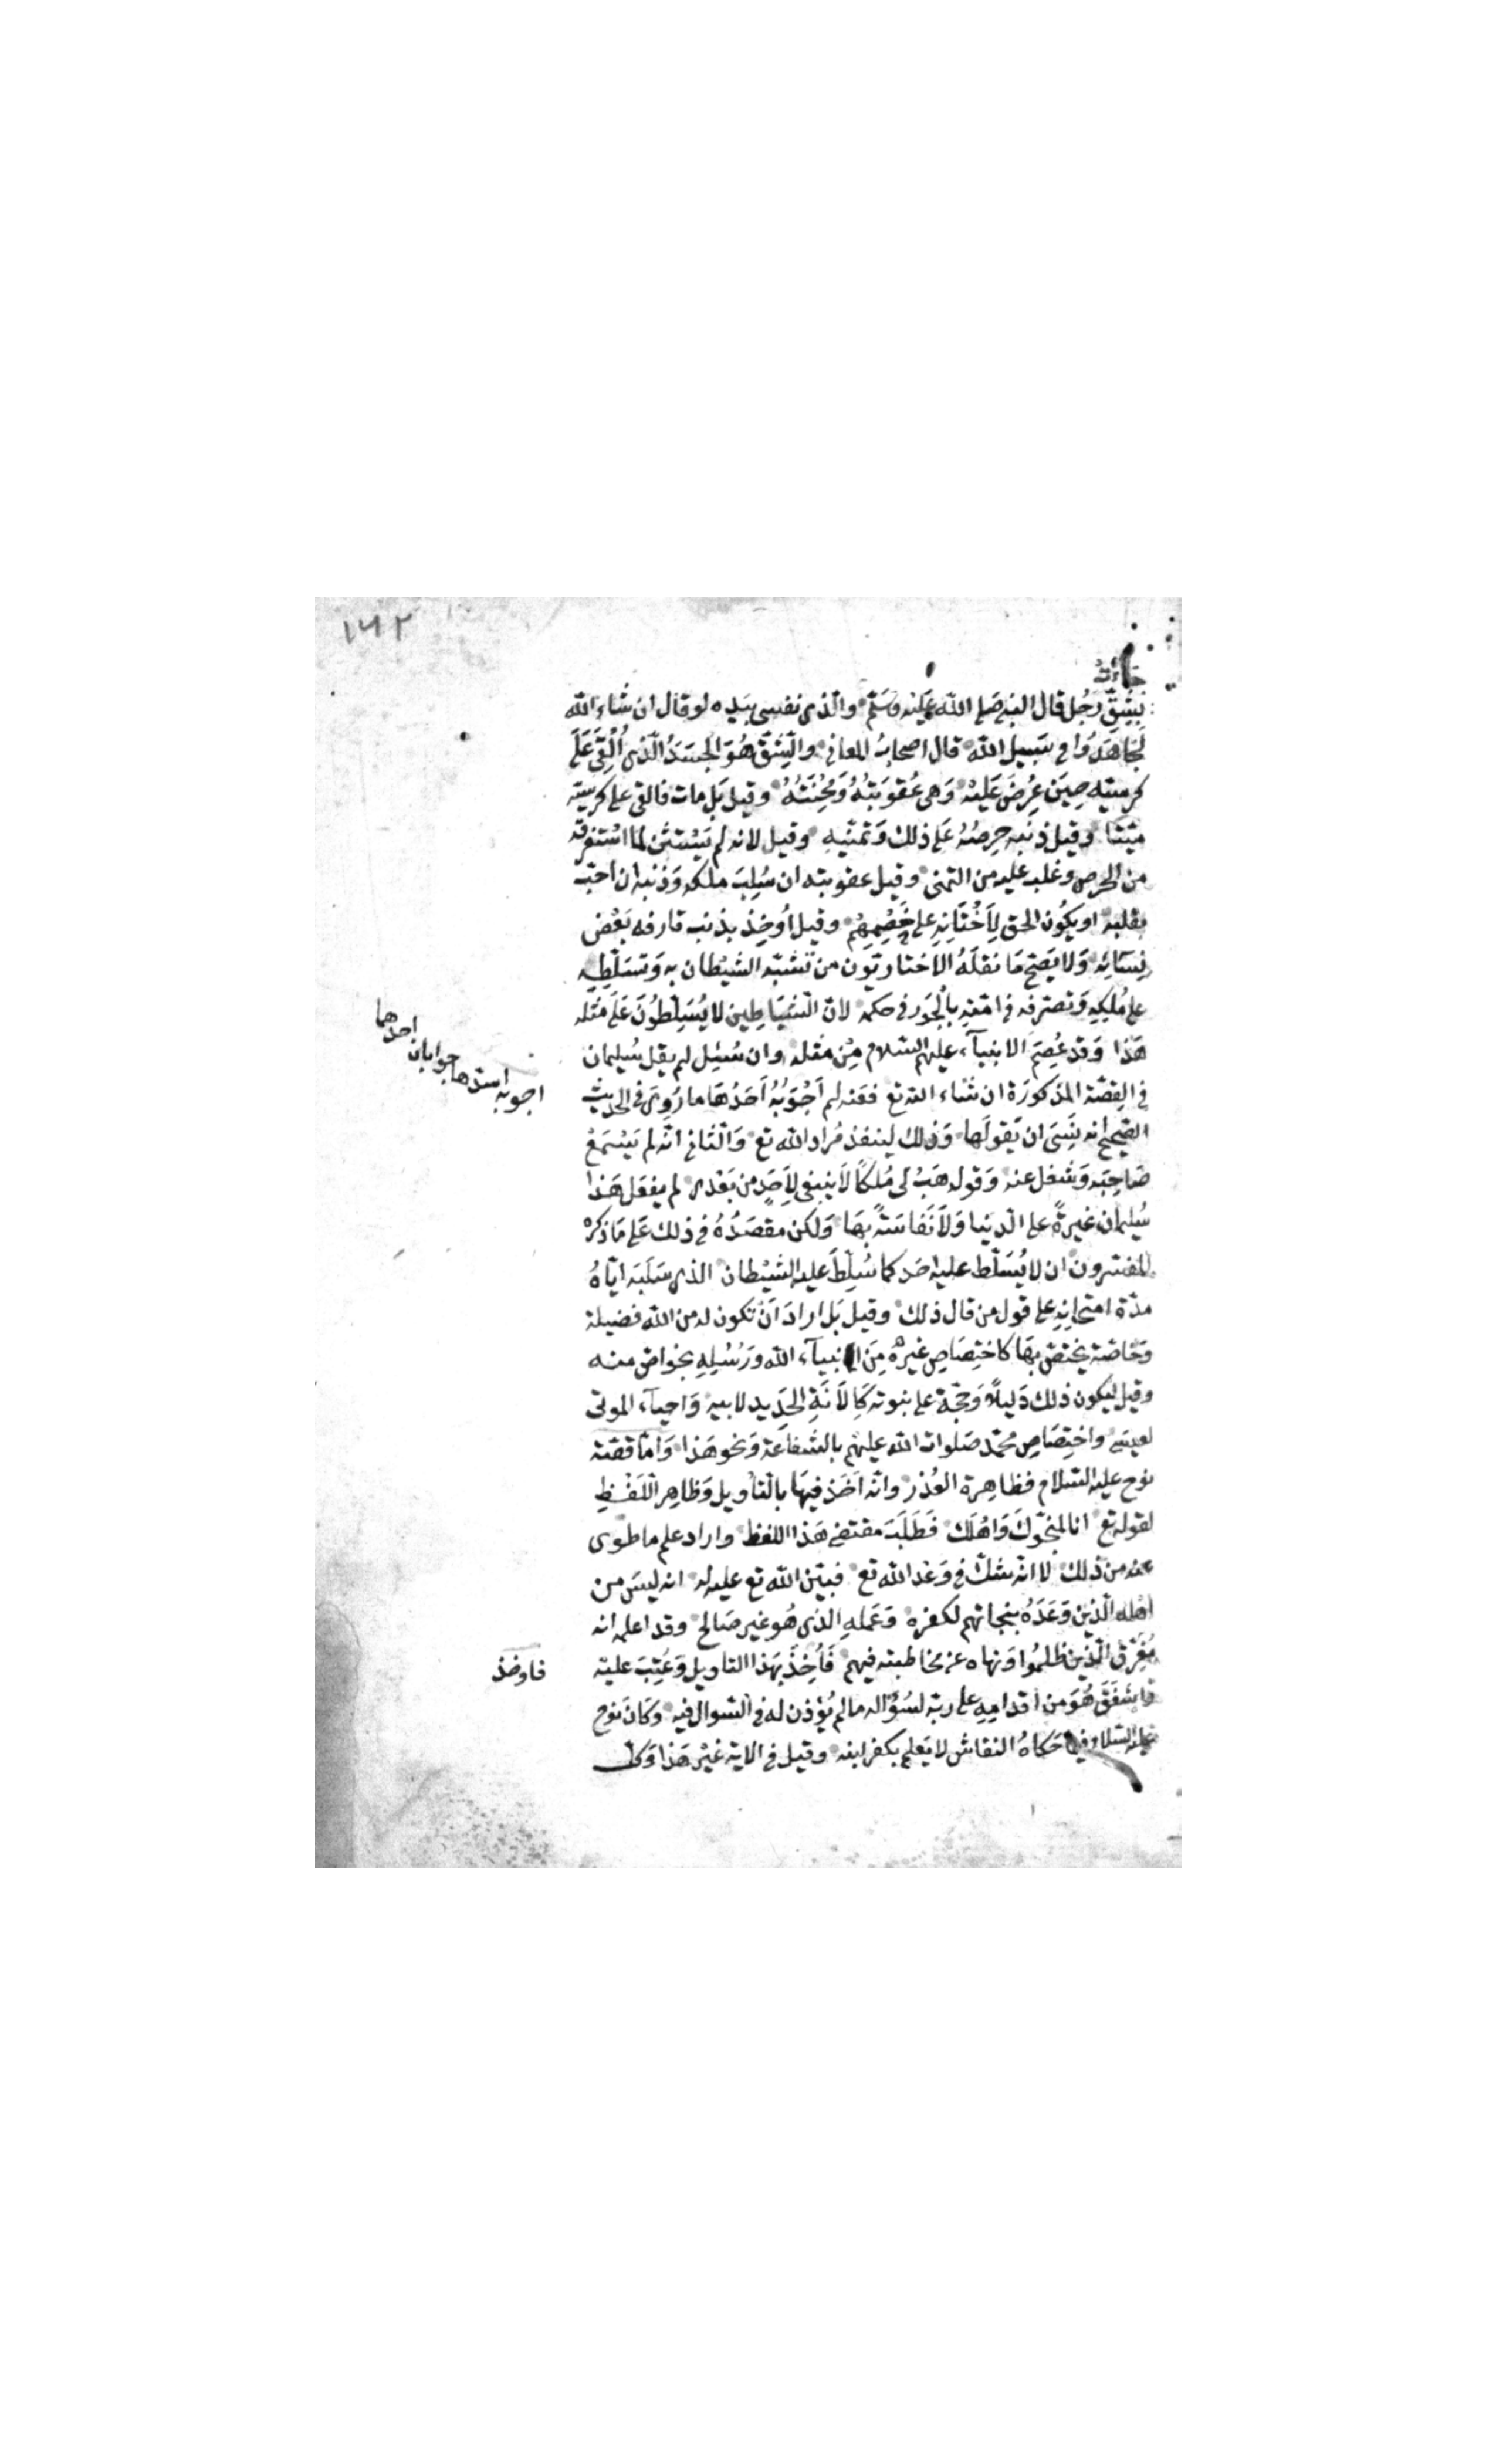 ١٧٢
جاءت
بشِقِّ رَجُل قال النبي صَلى الله عَليْه وَسَلّم والذى نفسى بيَدِه لو قال ان شاء الله
لَجَاهَدُوا في سَبيل الله قال اصحابُ المعانى والشِقّ هُوَ الجسَدُ الّذى أُلْقِىَ عَلَى
كرسيّه حِينَ عُرِضَ عَليْه وَهى عُقوبَتُهُ وَمِحْنَتُهُ وقيل بَل مات فالقى على كرسيّه
ميّتًا وقيل ذنبه حِرصُهُ عَلى ذلك وَتمنّيهِ وقيل لانه لم يَسْتثن لما اسْتغرقه
من الحِرص وغلب عليه من التمنى وقيل عقوبته ان سُلِبَ ملكه وَذنبه ان احَبّ
بقلبه ان يكُون الحق لِأَخْتَانِهِ على خَصْمِهِمْ وقيل أُوخِذَ بذنب قارفه بَعْض
نِسَآئِه وَلا يَصحّ مَا نقلَهُ الاَخباريّون من تشبّه الشيْطان بِه وَتسَلّطِهِ
على مُلكِهِ وَتصَرفه في امّتِهِ بالْجَوْر في حكمه لانّ الشيَاطِين لا يُسَلّطُونَ عَلَى مثله
هَذا وَقد عُصِمَ الانبيآء عليهم السّلام مِنْ مثله وان سُئِل لم يقل سُليمان
في القِصّة المذكورَة ان شاء الله تع ففيه له أَجْوبَةٌ أَحَدُهَا مَا رُوِىَ في الحديث
الصّحيح انه نَسِىَ ان يَقولَها وَذلك لينفذ مُراد الله تع وَالثانى انّه لم يَسْمَعْ
صَاحِبَه وَشغل عنه وَقوله هَبْ لى مُلكًا لاَ ينبغى لأَحَدٍ من بَعْدى لم يفعَل هَذا
سُليمان غيرةً على الدّنيا وَلاَ نَفاسَةً بهَا وَلكن مقصَدُهُ في ذلك عَلى مَا ذكرهُ
المفسّرون ان لا يُسَلّط عليه احَد كما سُلِّطَ عليه الشيْطان الذى سَلَبَه ايّاهُ
مدّة امتحانِهِ على قول من قال ذلك وقيل بَل ارادَ انْ تكون له من الله فضيلة
وَخاصّة يختصّ بهَا كاختِصَاصِ غيرهُ مِنَ انبيآء الله وَرُسُلِهِ بخواصّ منه
وقيل ليكون ذلك دَليلاً وَحجّة على نبوته كَإِلاَنَةِ الحَديد لابيه وَاحيآء الموتى
لعيسَى واختِصَاصِ محمّد صَلوات الله عليهم بالشفاعَة وَنحو هَذا وَامّا قصّة
نوح عليه السّلام فظاهِرة العُذر وانّه اَخَذ فيهَا بالتّأويل وَظاهِر اللّفْظِ
لقوله تع انا لمنجّوكَ وَاهْلَك فَطَلَبَ مقتضى هَذا اللفظ واراد علم ما طوى
عنه من ذلك لا انه شكّ في وَعْد الله تع فبيّن الله تع عليه له انه ليسَ من
اهْله الّذين وَعَدَهُ بنجاتهم لكفرِه وَعَمَلِهِ الذى هُو غير صَالح وقد اعلمه انه
مُغرِق الّذين ظلمُوا وَنهاه عن مخاطبته فيهم فَأُخِذَ بهَذا التاويل وَعُتِبَ عليْه
وَاشفَقَ هُوَ من اقدامِهِ على ربّه لسُؤاله ما لم يُؤذن له في السّوال فيه وَكانَ نوح
عليه السّلام فيما حَكاهُ النقاش لا يَعلم بكفر ابنه وقيل في الاية غيْر هَذا وَكلّ
اجوبه اسدها جوابان احدهما
فاوخذ